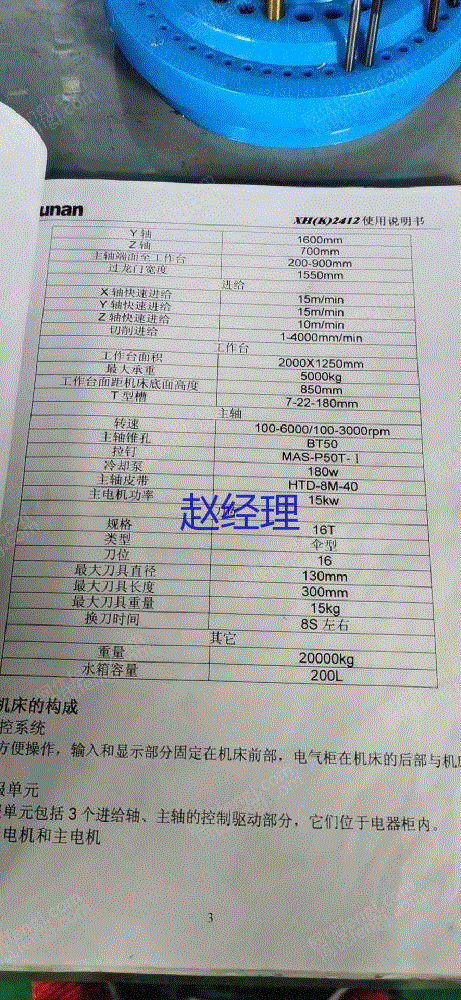 unan
XH(K)2412使用说明书
Y轴 1600mm
Z轴 700mm
主轴端面至工作台 200-900mm
过龙门宽度 1550mm
进给
X轴快速进给 15m/min
Y轴快速进给 15m/min
Z轴快速进给 10m/min
切削进给 1-4000mm/min
工作台
工作台面积 2000X1250mm
最大承重 5000kg
工作台面距机床底面高度 850mm
T型槽 7-22-180mm
主轴
转速 100-6000/100-3000rpm
主轴锥孔 BT50
拉钉 MAS-P50T-Ⅰ
冷却泵 180w
主轴皮带 HTD-8M-40
主电机功率 15kw
赵经理
规格 16T
类型 伞型
刀位 16
最大刀具直径 130mm
最大刀具长度 300mm
最大刀具重量 15kg
换刀时间 8S左右
其它
重量 20000kg
水箱容量 200L
机床的构成
控系统
方便操作，输入和显示部分固定在机床前部，电气柜在机床的后部与机
服单元
服单元包括3个进给轴、主轴的控制驱动部分，它们位于电器柜内。
电机和主电机
3